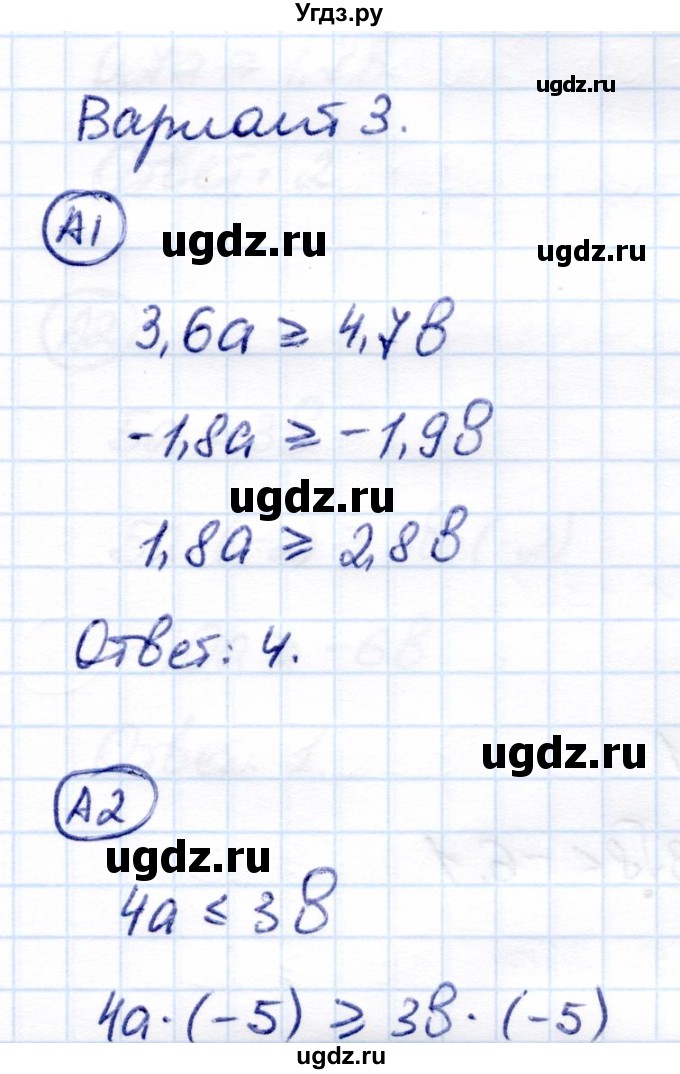 Угдз.ру
ugdz.ru
Вариант 3.
А1
ugdz.ru
ugdz.ru
3,6а ≥ 4,7в
-1,8а ≥ -1,9в
ugdz.ru
1,8а ≥ 2,8в
Ответ: 4.
ugdz.ru
А2
ugdz.ru
4а ≤ 3в
4а·(-5) ≥ 3в·(-5)
ugdz.ru